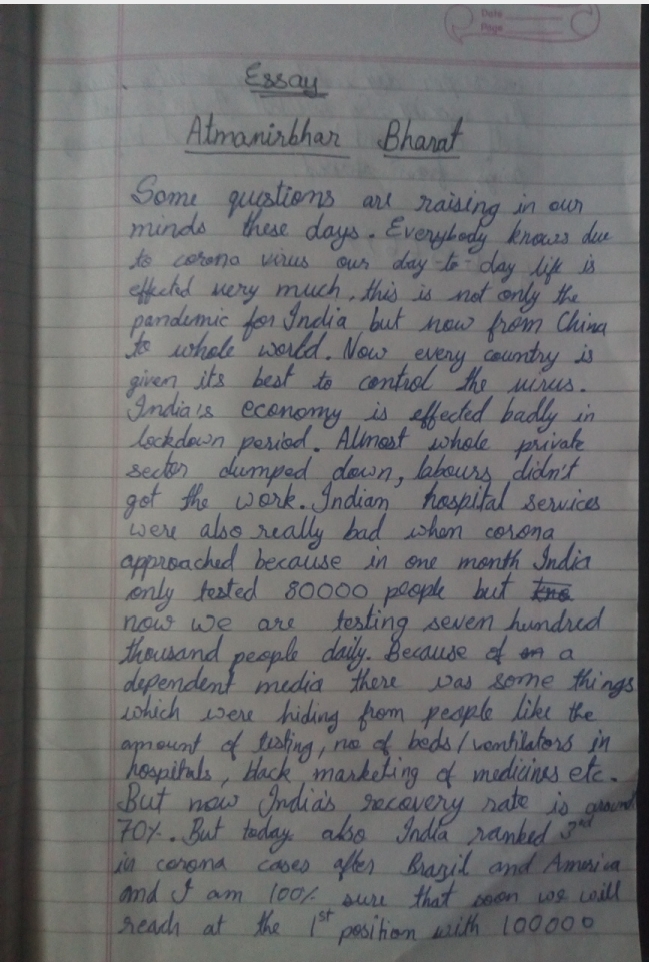 Date
Page
Essay
Atmanirbhar Bharat
Some questions are raising in our
minds these days. Everybody knows due
to corona virus our day-to-day life is
effected very much, this is not only the
pandemic for India but now from China
to whole world. Now every country is
given its best to control the virus.
India's economy is effected badly in
lockdown period. Almost whole private
sector dumped down, labours didn't
got the work. Indian hospital services
were also really bad when corona
approached because in one month India
only tested 80000 people but
now we are testing seven hundred
thousand people daily. Because of a
dependent media there was some things
which were hiding from people like the
amount of testing, no of beds/ventilators in
hospitals, black marketing of medicines etc.
But now India's recovery rate is around
70%. But today also India ranked 3rd
in corona cases after Brazil and America
and I am 100% sure that soon we will
reach at the 1st position with 100000